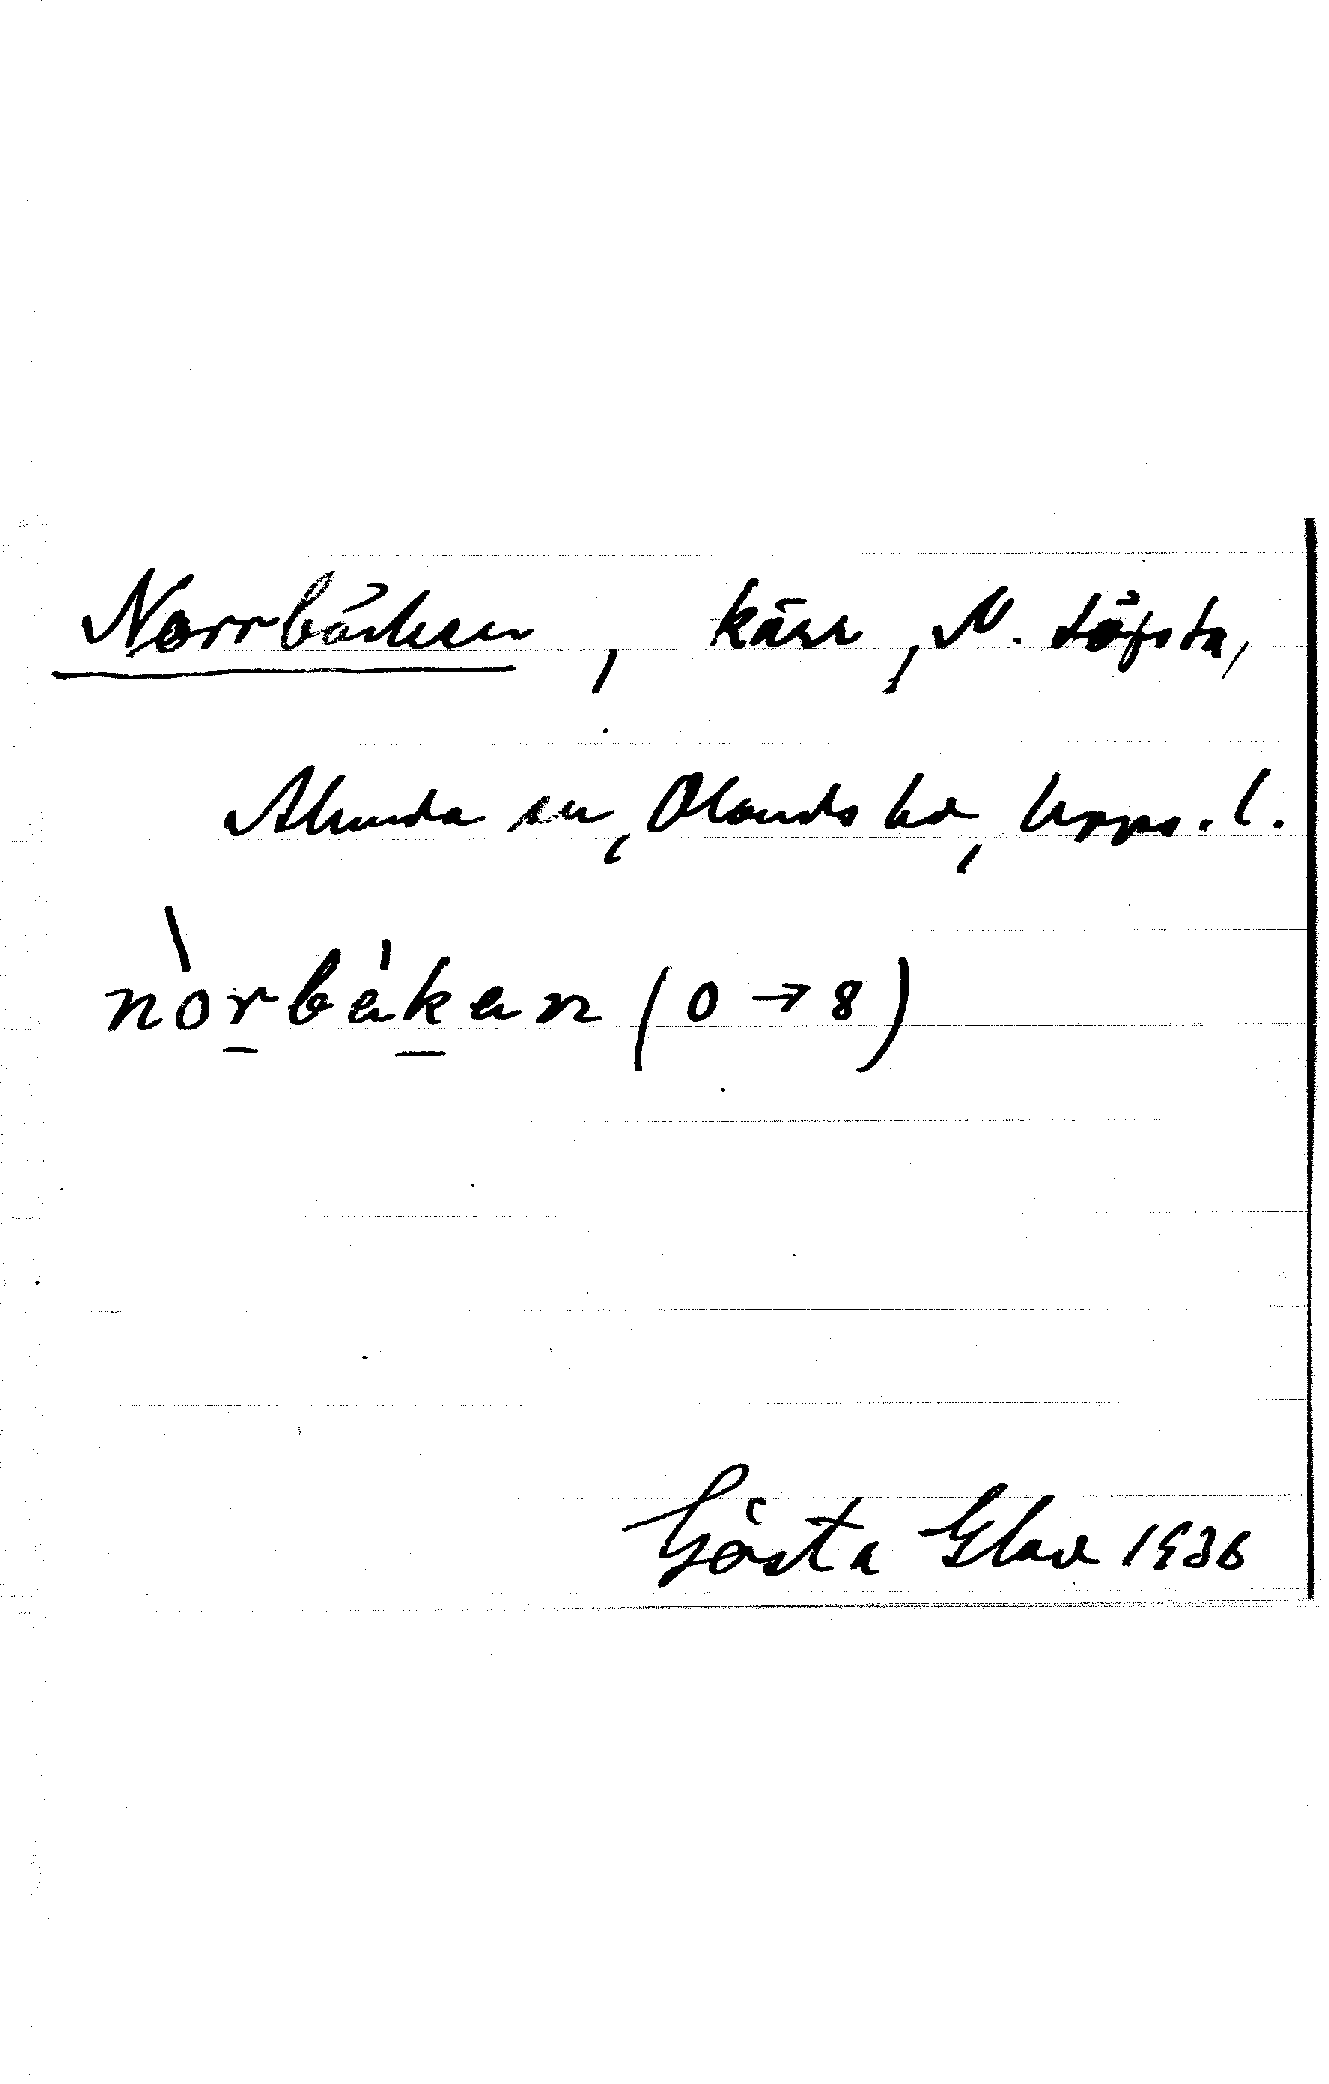 Norrbäcken, kärr, N. Löfsta,
Alunda sn, Olands hd, Upps. l.
nòrbàkan (o → 8)
Gösta Glad 1936